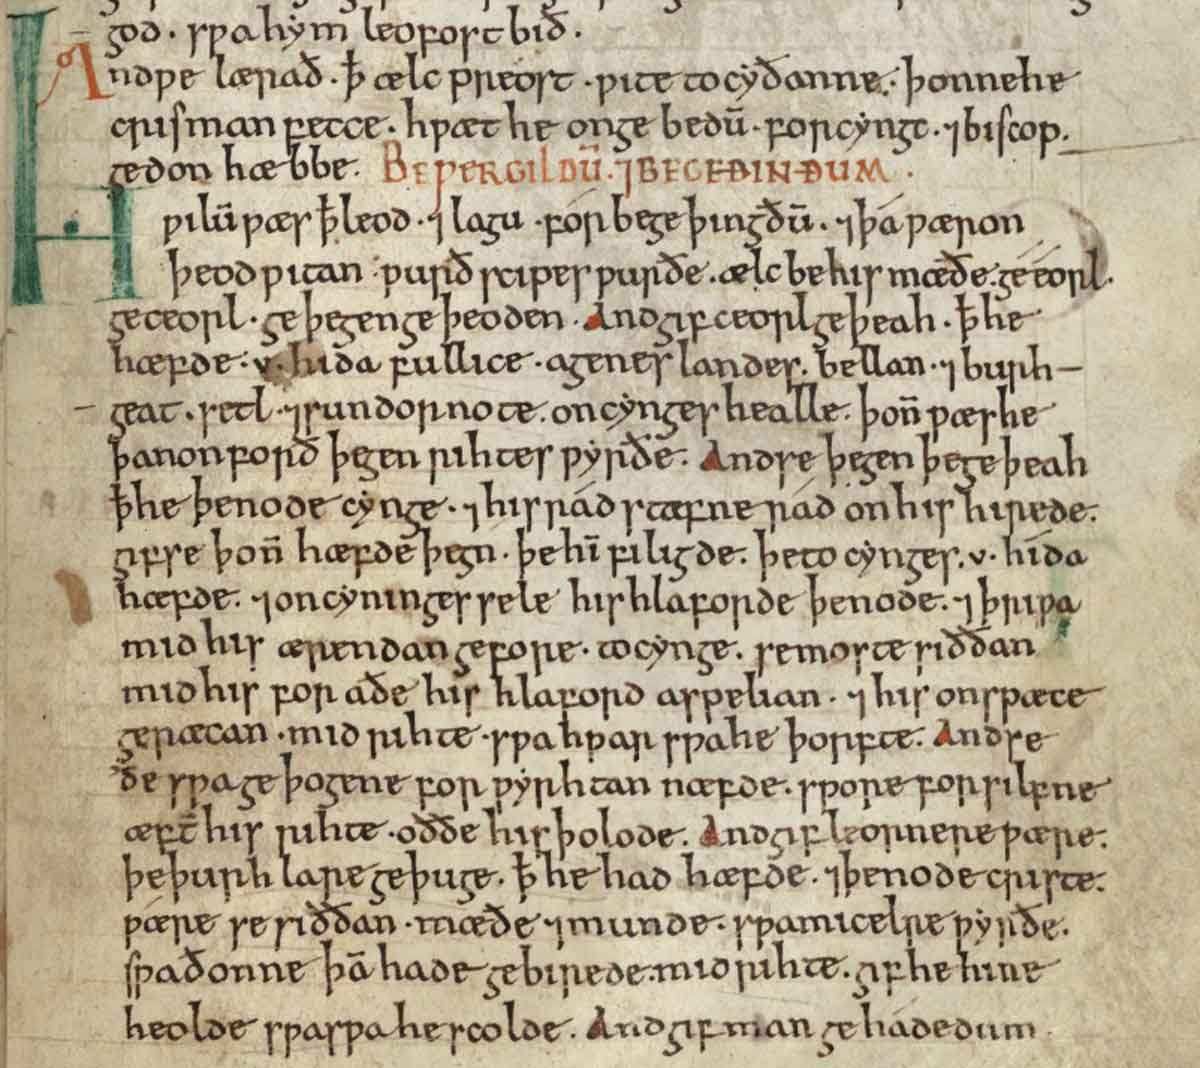 god · swa hym leofost bið ·
Andwe lærað · ꝥ ælc preost · wite to cyðanne · þonne he
crisman fetce · hwæt he on gebedū · for cyngc · ⁊ biscop.
gedon hæbbe. BE ǷERGILDŪ · ⁊ BEGEÐINÐUM ·
Hwilū wæs ꝥ leod · ⁊ lagu · fór be geþingðū · ⁊ þá wæron
þeodwitan · wurðscipes wurðe · ælc be his mæðe · ge eorl ·
ge ceorl · ge þegen ge þeoden · And gif ceorl geþeah · ꝥ he
hæfde · v · hida fullice · agenes landes · bellan · ⁊ burh
geat · setl · ⁊ sundornote · on cynges healle · þoñ wæs he
þanon forð þegen rihtes wyrðe · And se þegen þe geþeah
ꝥ he þenode cynge · ⁊ his rád stæfne rád on his hirede ·
gif se þoñ hæfde þegn · þe hī filigde · þe to cynges · v · hida
hæfde · ⁊ on cyninges sele his hlaforde þenode · ⁊ þriwa
mid his ærendan gefore · to cynge · se moste siððan
mid his for aðe his hlaford aspelian · ⁊ his onspæce
geræcan · mid rihte · swa hwar swa he þorfte · And se
ðe swa geþogene forwyrhtan næfde · swore for silfne
æft̄ his rihte · oððe his þolode · And gif leornere wære ·
þe þurh lare geþuge · ꝥ he had hæfde · ⁊ þenode criste ·
wære se siððan · mæðe · ⁊ munde · swa micelre wyrðe ·
swa ðonne þā hade gebirede · mid rihte · gif he hine
heolde swa swa he scolde · And gif man gehádedum